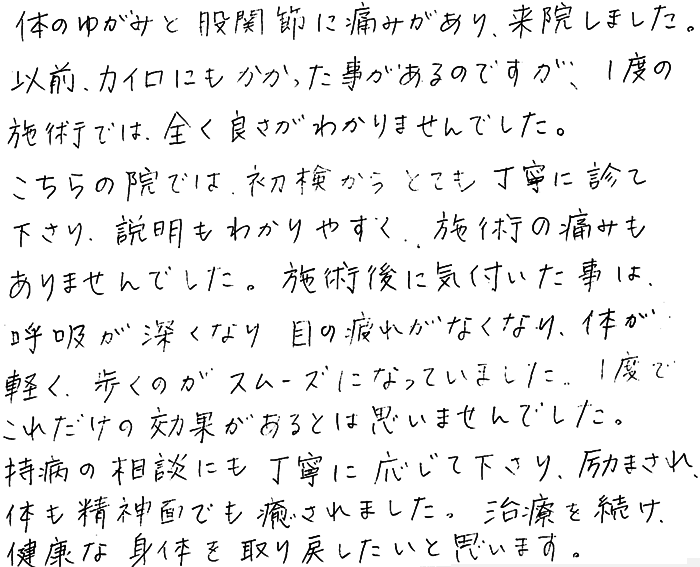 体のゆがみと股関節に痛みがあり、来院しました。
以前、カイロにもかかった事があるのですが、1度の
施術では、全く良さがわかりませんでした。
こちらの院では、初検からとても丁寧に診て
下さり、説明もわかりやすく、施術の痛みも
ありませんでした。施術後に気付いた事は、
呼吸が深くなり目の疲れがなくなり、体が
軽く、歩くのがスムーズになっていました。1度で
これだけの効果があるとは思いませんでした。
持病の相談にも丁寧に応じて下さり、励まされ、
体も精神面でも癒されました。治療を続け、
健康な身体を取り戻したいと思います。